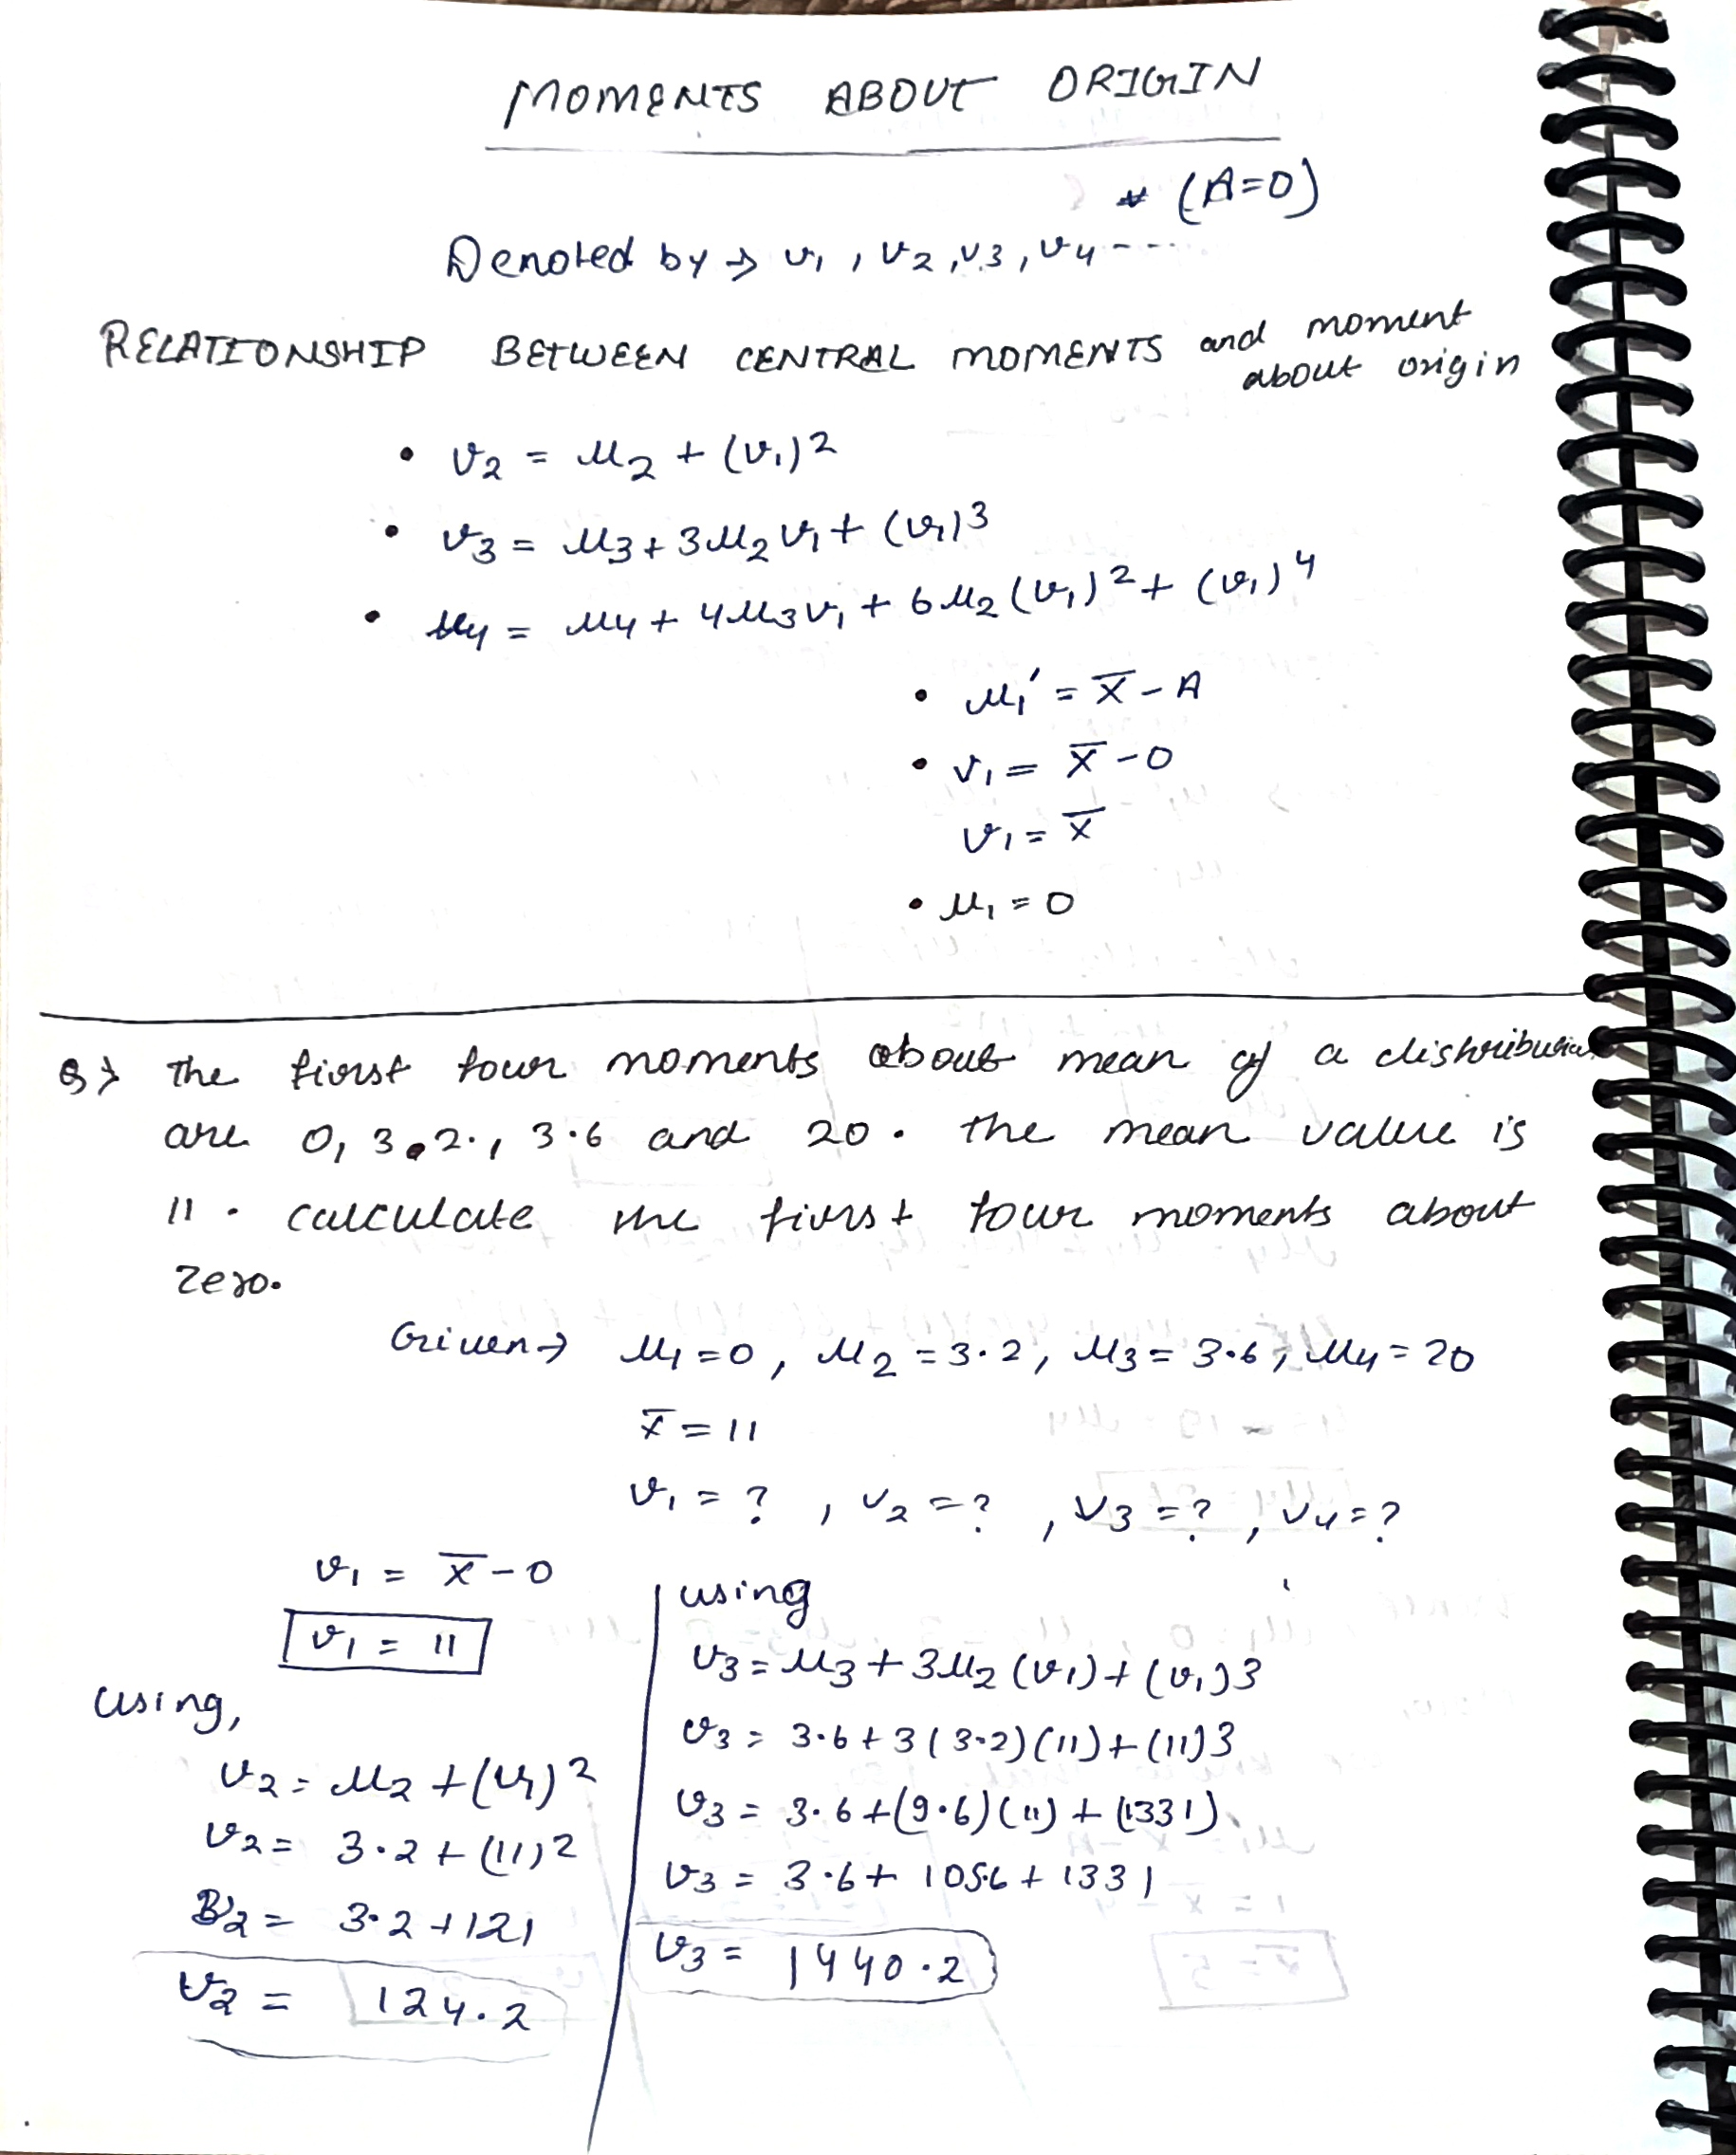 MOMENTS ABOUT ORIGIN
* (A=0)
Denoted by → v₁, v₂, v₃, v₄ ----
RELATIONSHIP BETWEEN CENTRAL MOMENTS and moment
about origin
• v₂ = μ₂ + (v₁)²
• v₃ = μ₃ + 3μ₂v₁ + (v₁)³
• v₄ = μ₄ + 4μ₃v₁ + 6μ₂(v₁)² + (v₁)⁴
• μ₁′ = x̄ - A
• v₁ = x̄ - 0
v₁ = x̄
• μ₁ = 0
Q→ The first four moments about mean of a distribution
are 0, 3.2, 3.6 and 20. the mean value is
11. calculate the first four moments about
zero.
Given → μ₁=0, μ₂=3.2, μ₃=3.6, μ₄=20
x̄ = 11
v₁ = ?, v₂ = ?, v₃ = ?, v₄ = ?
v₁ = x̄ - 0
v₁ = 11
using,
v₂ = μ₂ + (v₁)²
v₂ = 3.2 + (11)²
v₂ = 3.2 + 121
v₂ = 124.2
using
v₃ = μ₃ + 3μ₂(v₁) + (v₁)3
v₃ = 3.6 + 3(3.2)(11) + (11)3
v₃ = 3.6 + (9.6)(11) + (1331)
v₃ = 3.6 + 105.6 + 1331
v₃ = 1440.2